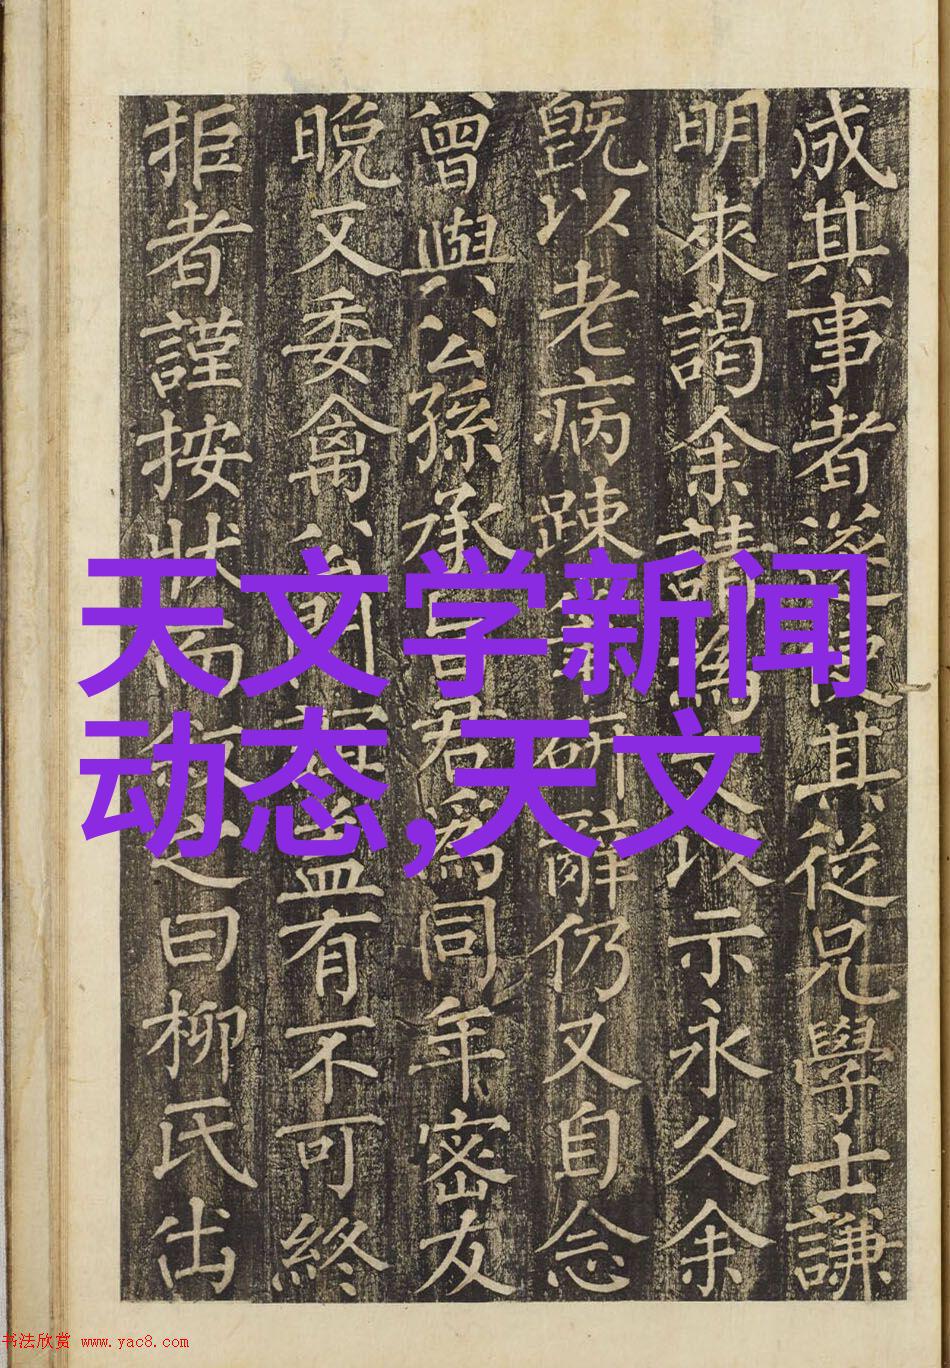 成其事者
其從兄學士謙
明來謁余請為
以示永久余
既以老病疎
研辭仍又自念
曾與公孫承
君為同年密友
晚又委禽
有不可終
拒者謹按狀
曰柳氏出
天文学新闻
动态,天文
书法欣赏 www.yac8.com